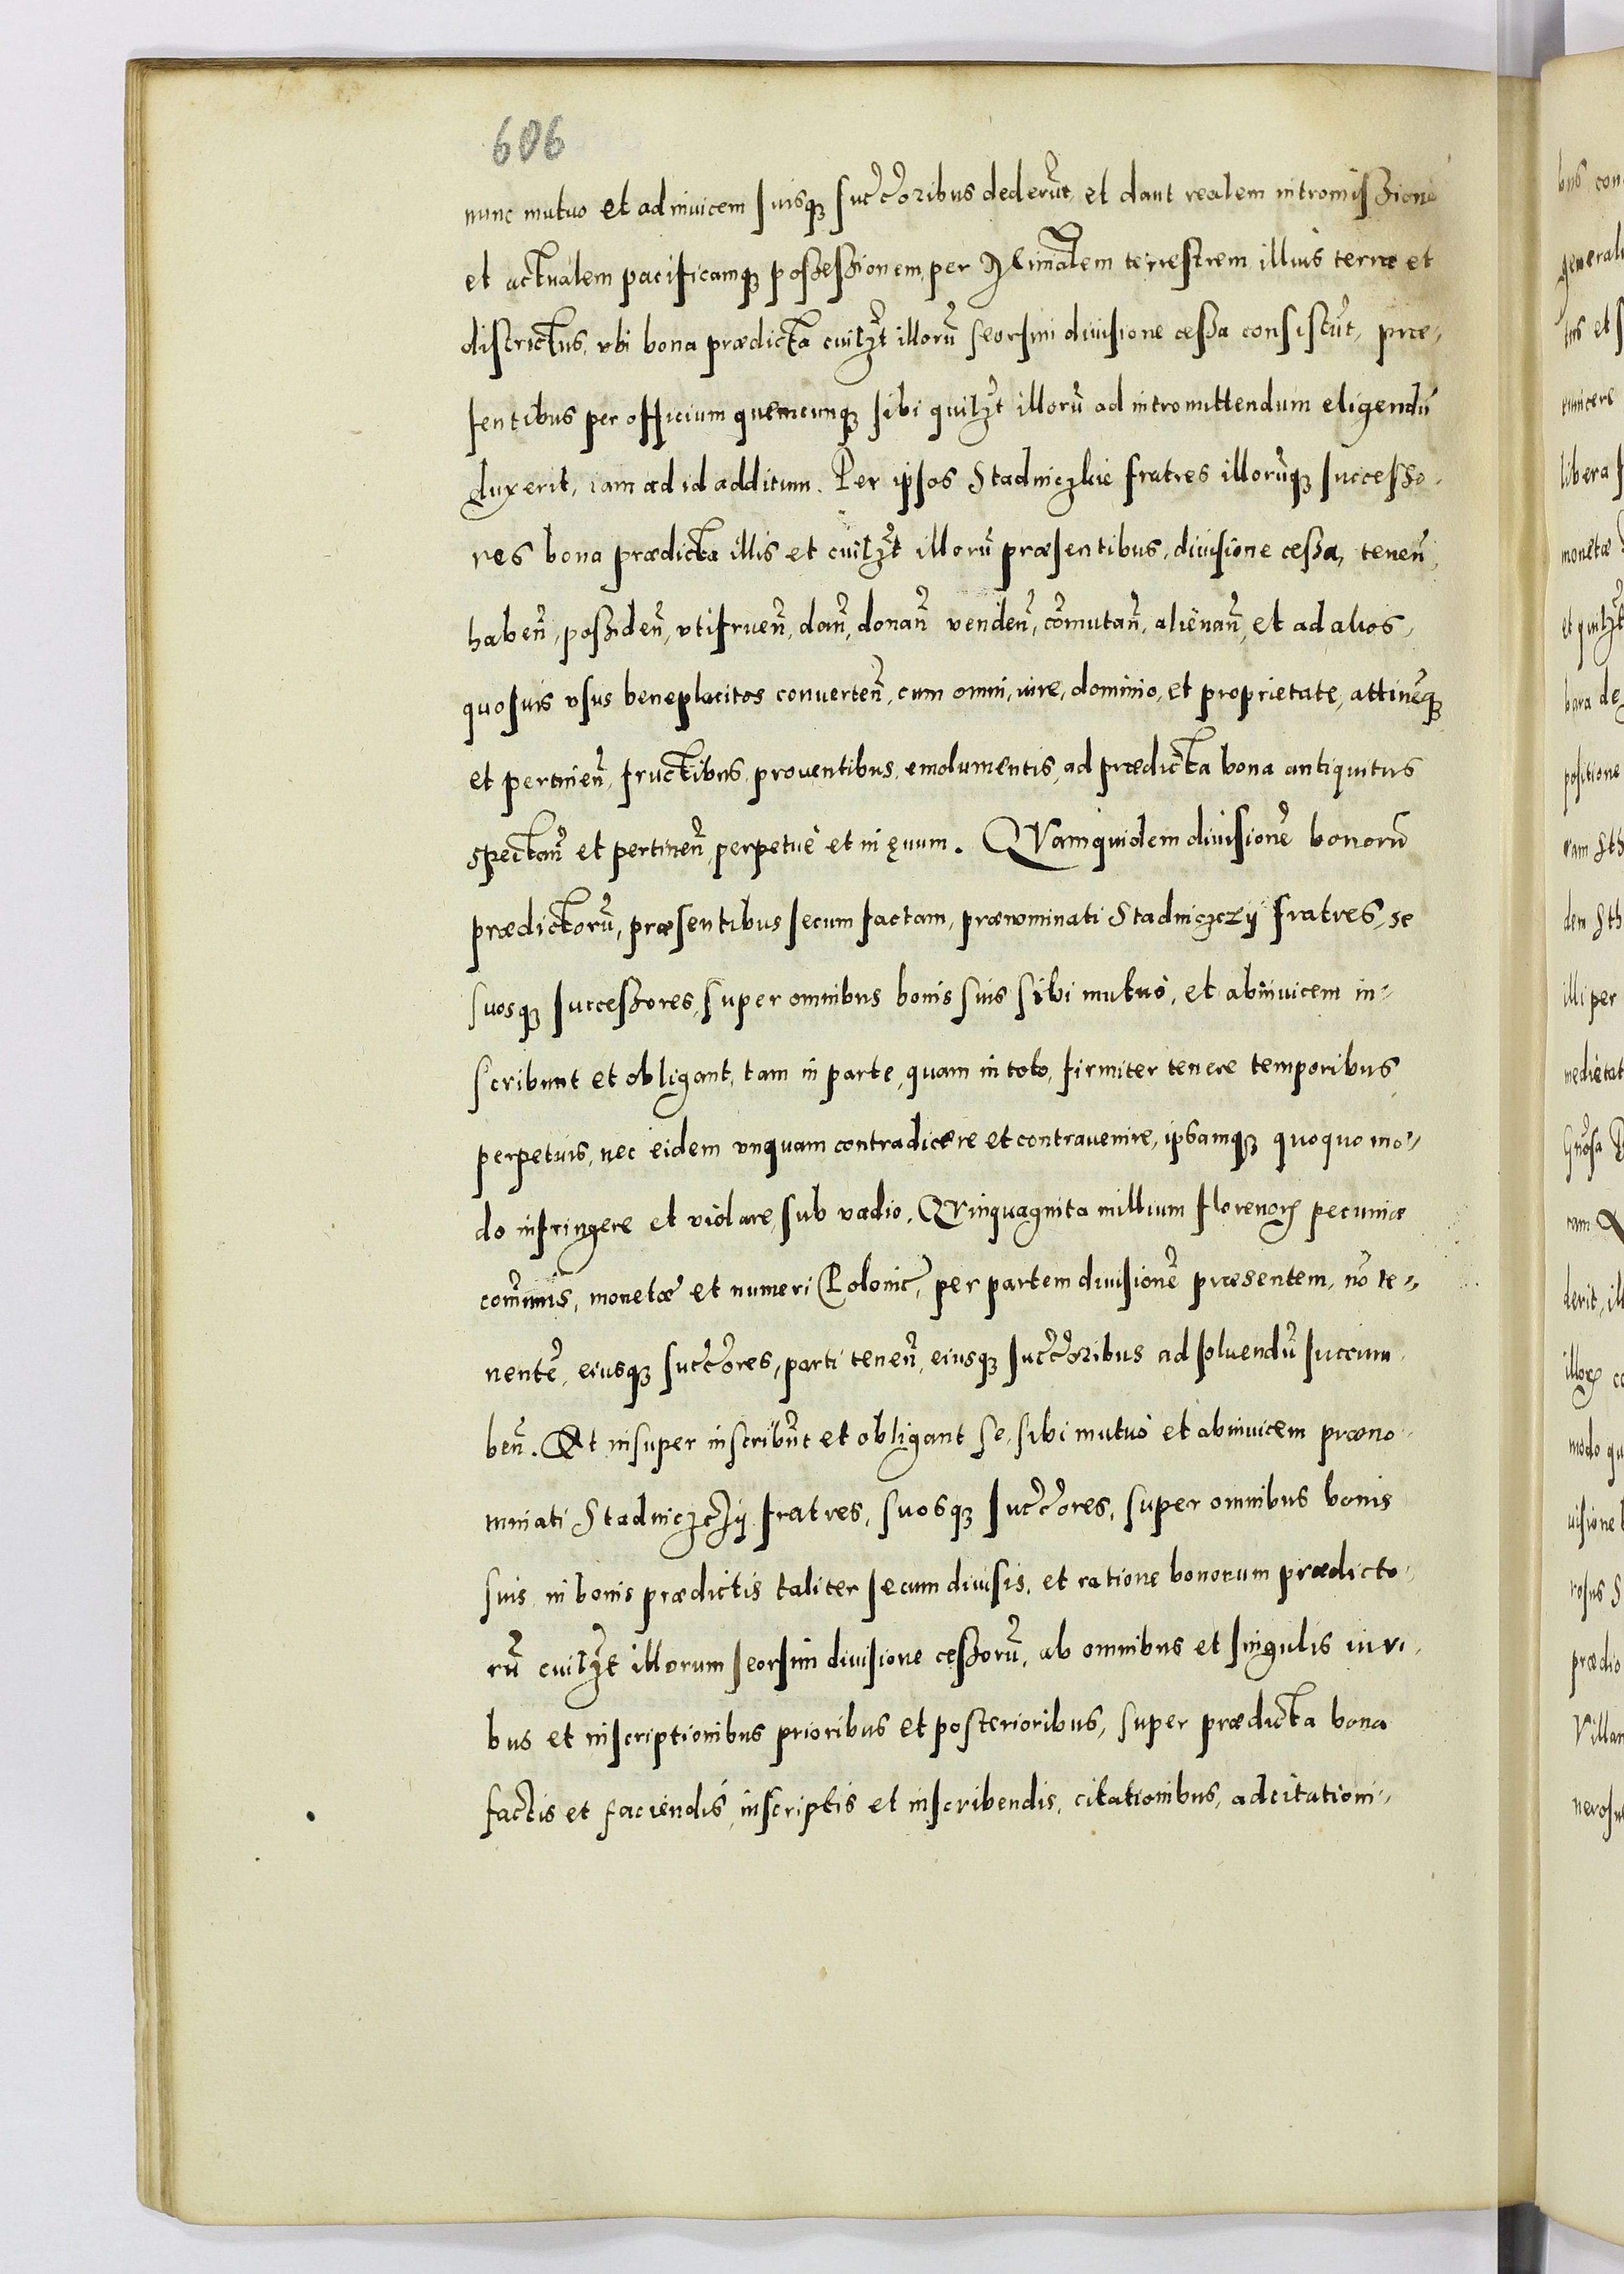 606
nunc mutuo et ad invicem suisq₃ succ̃oribus dederūt, et dant realem intromissionē
et actualem pacificamq₃ possessionem, per Mi̅n̅alem terrestrem illius terræ et
districtus, vbi bona prædicta cuilꝫt illorū seorsim diuisione cessa consistūt, præ-
sentibus per officium quemcunq₃ sibi quilꝫt illorū ad intromittendum eligendū
duxerit, iam ad id additum. Per ipsos Stadniczkie fratres illorūq₃ successo-
res bona prædicta illis et cuilꝫt illorū præsentibus, diuisione cessa, teneñ,
habeñ, possideñ, vtifrueñ, dañ, donañ vendeñ, cōmutañ, alienañ, et ad alios,
quosuis vsus beneplacitos conuerteñ, cum omni, iure, dominio, et proprietate, attineñq₃
et pertineñ, fructibus, prouentibus, emolumentis, ad prædicta bona antiquitus
spectañ et pertineñ, perpetuè et in ęuum. QVamquidem diuisionē bonorū
prædictorū, præsentibus secum factam, prænominati Stadniczczÿ fratres, se
suosq₃ successores, super omnibus bonis suis sibi mutuò, et abinuicem in-
scribunt et obligant, tam in parte, quam in toto, firmiter tenere temporibus
perpetuis, nec eidem vnquam contradicere et contrauenire, ipsamq₃ quoquo mo-
do infringere et violare, sub vadio. QVinquaginta millium florenorꝫ pecuniæ
cōmunis, monetæ et numeri Polonic̃, per partem diuisionē præsentem, nō te-
nentē, eiusq₃ succ̃ores, parti teneñ, eiusq₃ succ̃oribus ad soluendū succum-
beñ. Et insuper inscribūt et obligant se, sibi mutuò et abinuicem præno-
minati Stadniczczÿ fratres, suosq₃ succ̃ores, super omnibus bonis
suis, in bonis prædictis taliter secum diuisis, et ratione bonorum prædicto-
rū cuilꝫt illorum seorsim diuisione cessorū, ab omnibus et singulis iuri-
bus et inscriptionibus prioribus et posterioribus, super prædicta bona
factis et faciendis, inscriptis et inscribendis, citationibus, adcitationi-